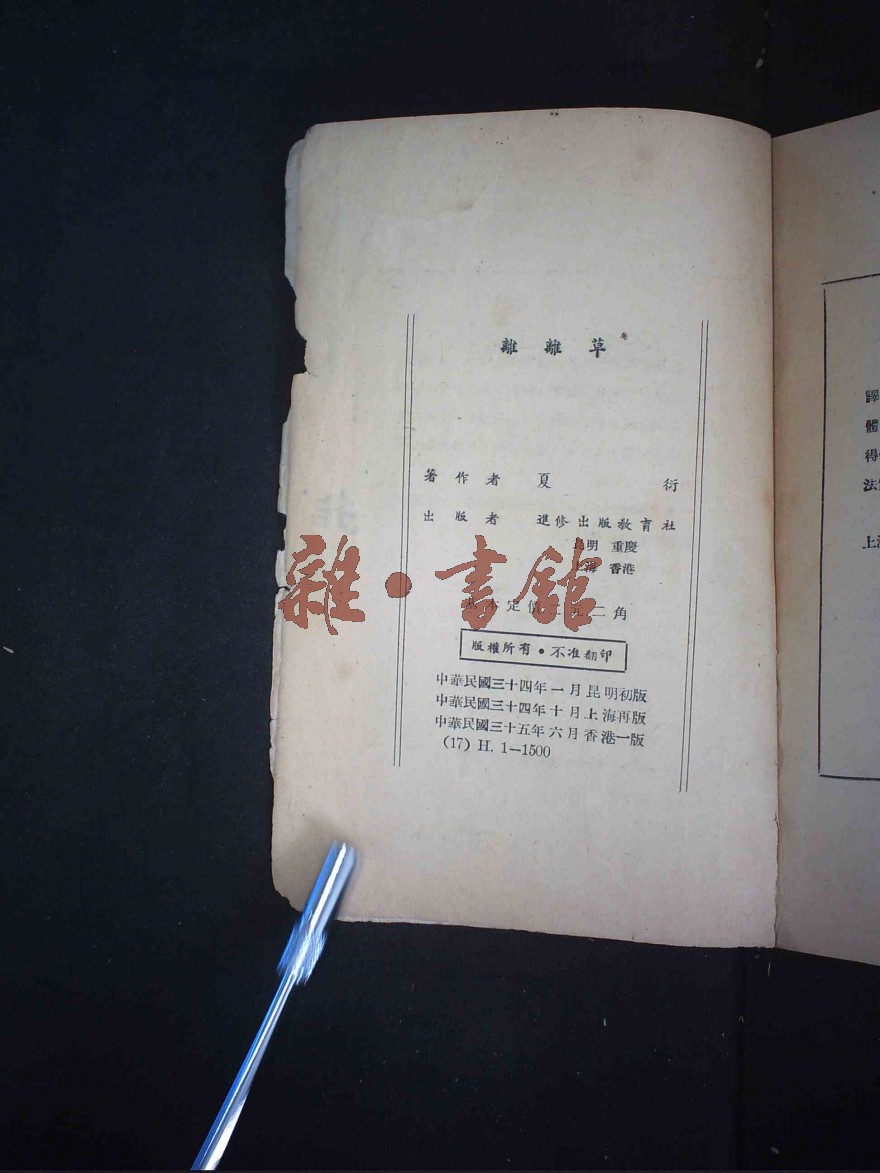 離離草
著作者 夏衍
出版者 進修出版教育社
昆明 重慶
上海 香港
雜·書館
基本定價二元二角
版權所有·不准翻印
中華民國三十四年一月昆明初版
中華民國三十四年十月上海再版
中華民國三十五年六月香港一版
(17) H. 1—1500
體
得
法
上海